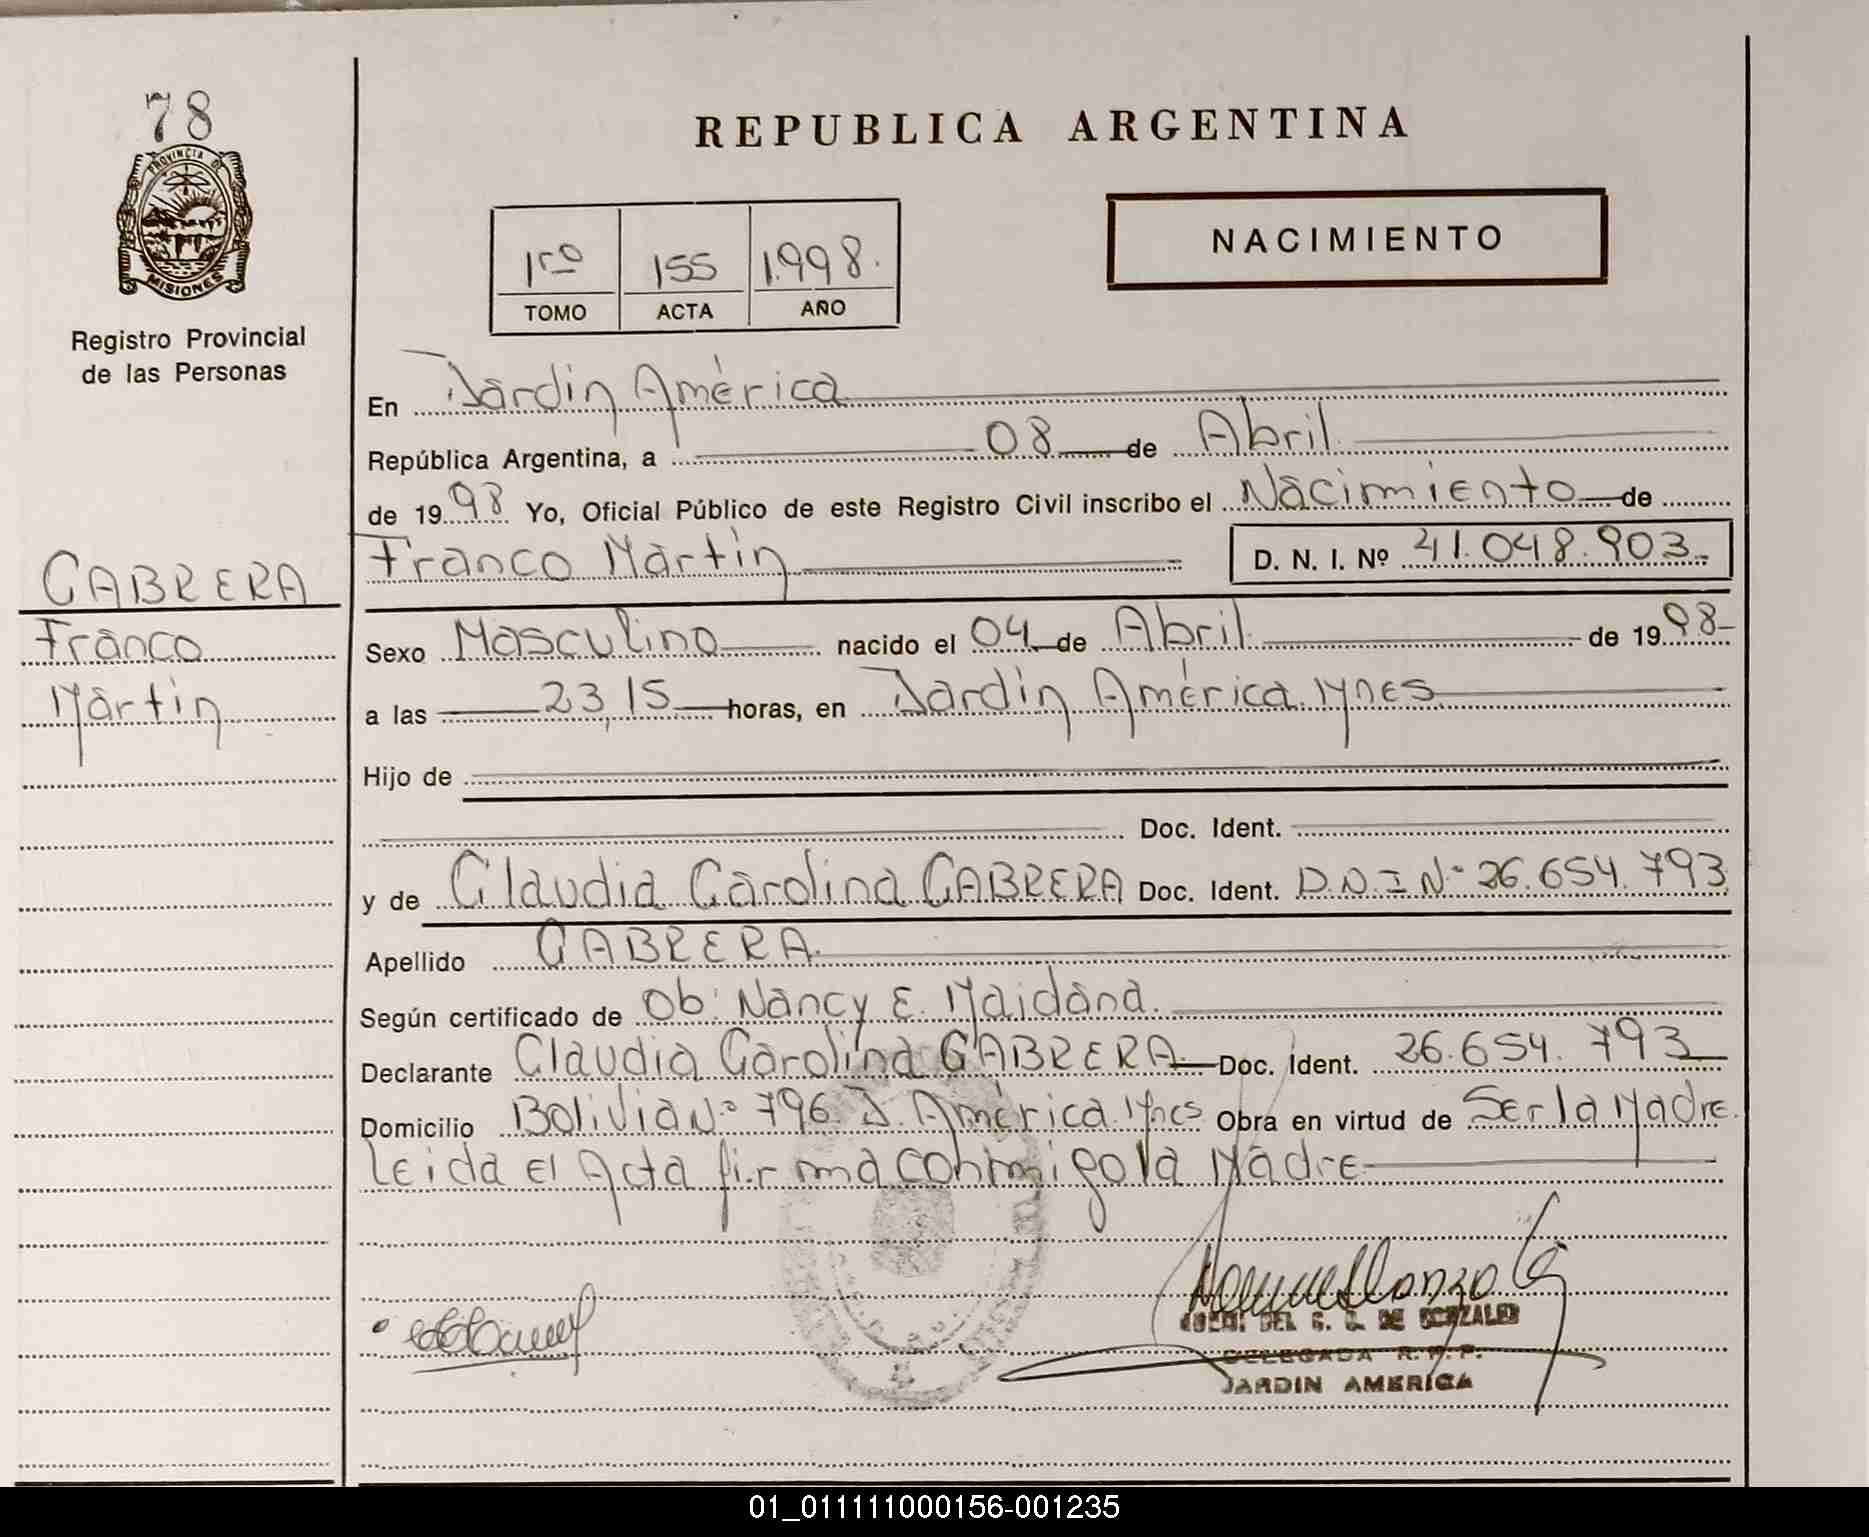 78
PROVINCIA DE
MISIONES
Registro Provincial
de las Personas
REPUBLICA ARGENTINA
1ro 155 1.998.
TOMO ACTA AÑO
NACIMIENTO
En Jardin América
República Argentina, a 08 de Abril
de 1998 Yo, Oficial Público de este Registro Civil inscribo el Nacimiento de
CABRERA
Franco
Martin
Franco Martin D. N. I. Nº 41.048.903
Sexo Masculino nacido el 04 de Abril de 1998
a las 23,15 horas, en Jardin América. Mnes
Hijo de
Doc. Ident.
y de Claudia Carolina CABRERA Doc. Ident. D.N.I Nº 26.654.793
Apellido CABRERA.
Según certificado de Ob: Nancy E. Maidana.
Declarante Claudia Carolina CABRERA Doc. Ident. 26.654.793
Domicilio Bolivia Nº 796. J. América. Mnes Obra en virtud de Ser la Madre.
Leida El Acta firma conmigo la Madre
DEL C. G. DE GONZALEZ
DELEGADA R. P. P.
JARDIN AMERICA
01_011111000156-001235